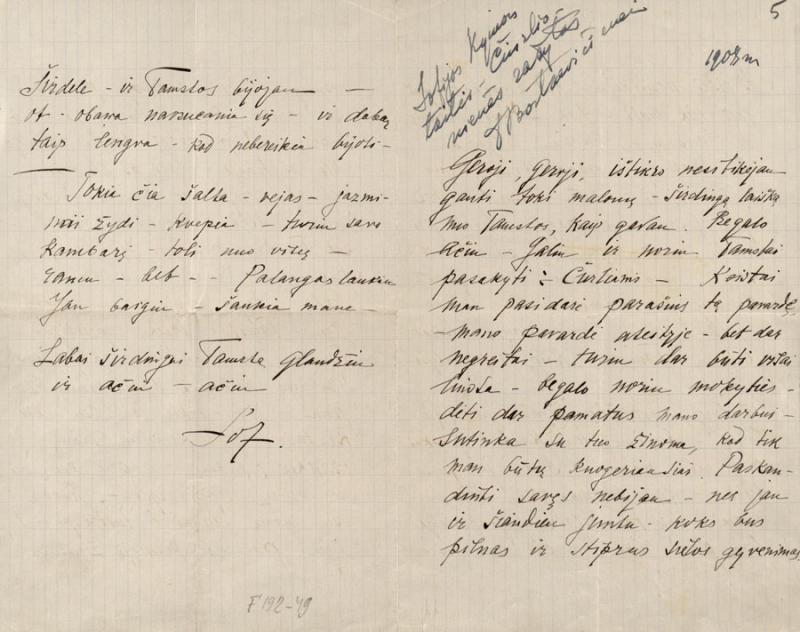 5
1908 m
Sofijos Kymantaitės - Čiurlionienės raštas
Bortkevičienei
Geroji, geroji, ištikro nesitikėjau
gauti tokį malonų - širdingą laišką
nuo Tamstos, kaip gavau. Begalo
Ačiu - Galiu ir noriu Tamstai
pasakyti: Čurliams - Keistai
man pasidarė parašius tą pavardę,
mano pavardė ateityje - bet dar
negreitai - turiu dar būti
liuosa - begalo noriu mokyties -
dėti dar pamatus mano darbui -
Sutinka su tuo žinoma, kad tik
man būtų kuogeriausiai. Paskan-
dinti savęs nebijau - nes jau
ir šiandien jiemtu - koks bus
pilnas ir stiprus sielos gyvenimas,
Širdele - ir Tamstos bijojau -
ot - obawa narzucania się - ir dabar
taip lengva - kad nebereikia bijoti -
Tokia čia šalta - vejas - jazmi-
nai žydi - kvepia - turiu savo
kambarį - toli nuo visų -
- bet - - Palangos laukiu
Jau baigiu - šaukia mane -
Labai širdingai Tamstą glaudžiu
ir ačiu - ačiu
Zof.
F 192-49